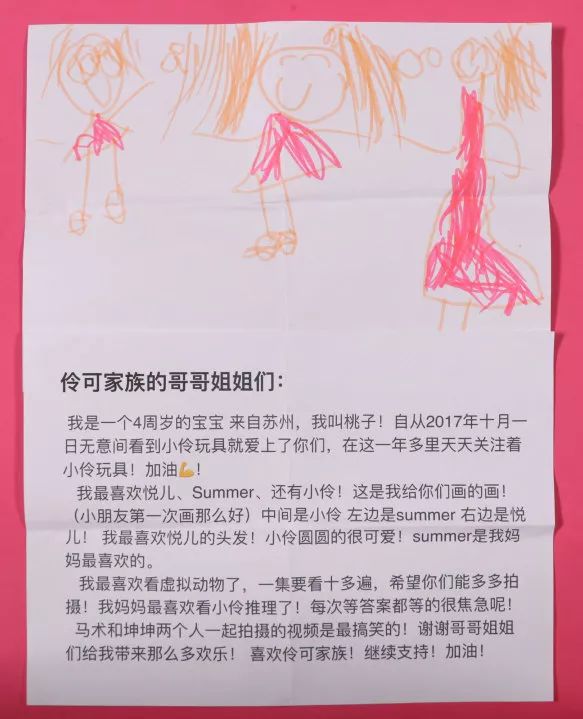 伶可家族的哥哥姐姐们：
我是一个4周岁的宝宝 来自苏州，我叫桃子！自从2017年十月一
日无意间看到小伶玩具就爱上了你们，在这一年多里天天关注着
小伶玩具！加油💪！
我最喜欢悦儿、Summer、还有小伶！这是我给你们画的画！
（小朋友第一次画那么好）中间是小伶 左边是summer 右边是悦
儿！ 我最喜欢悦儿的头发！小伶圆圆的很可爱！summer是我妈
妈最喜欢的。
我最喜欢看虚拟动物了，一集要看十多遍，希望你们能多多拍
摄！我妈妈最喜欢看小伶推理了！每次等答案都等的很焦急呢！
马术和坤坤两个人一起拍摄的视频是最搞笑的！谢谢哥哥姐姐
们给我带来那么多欢乐！ 喜欢伶可家族！继续支持！加油！